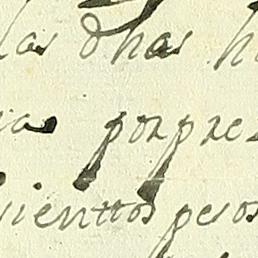 las dhas h
as por pre
cienttos pesos